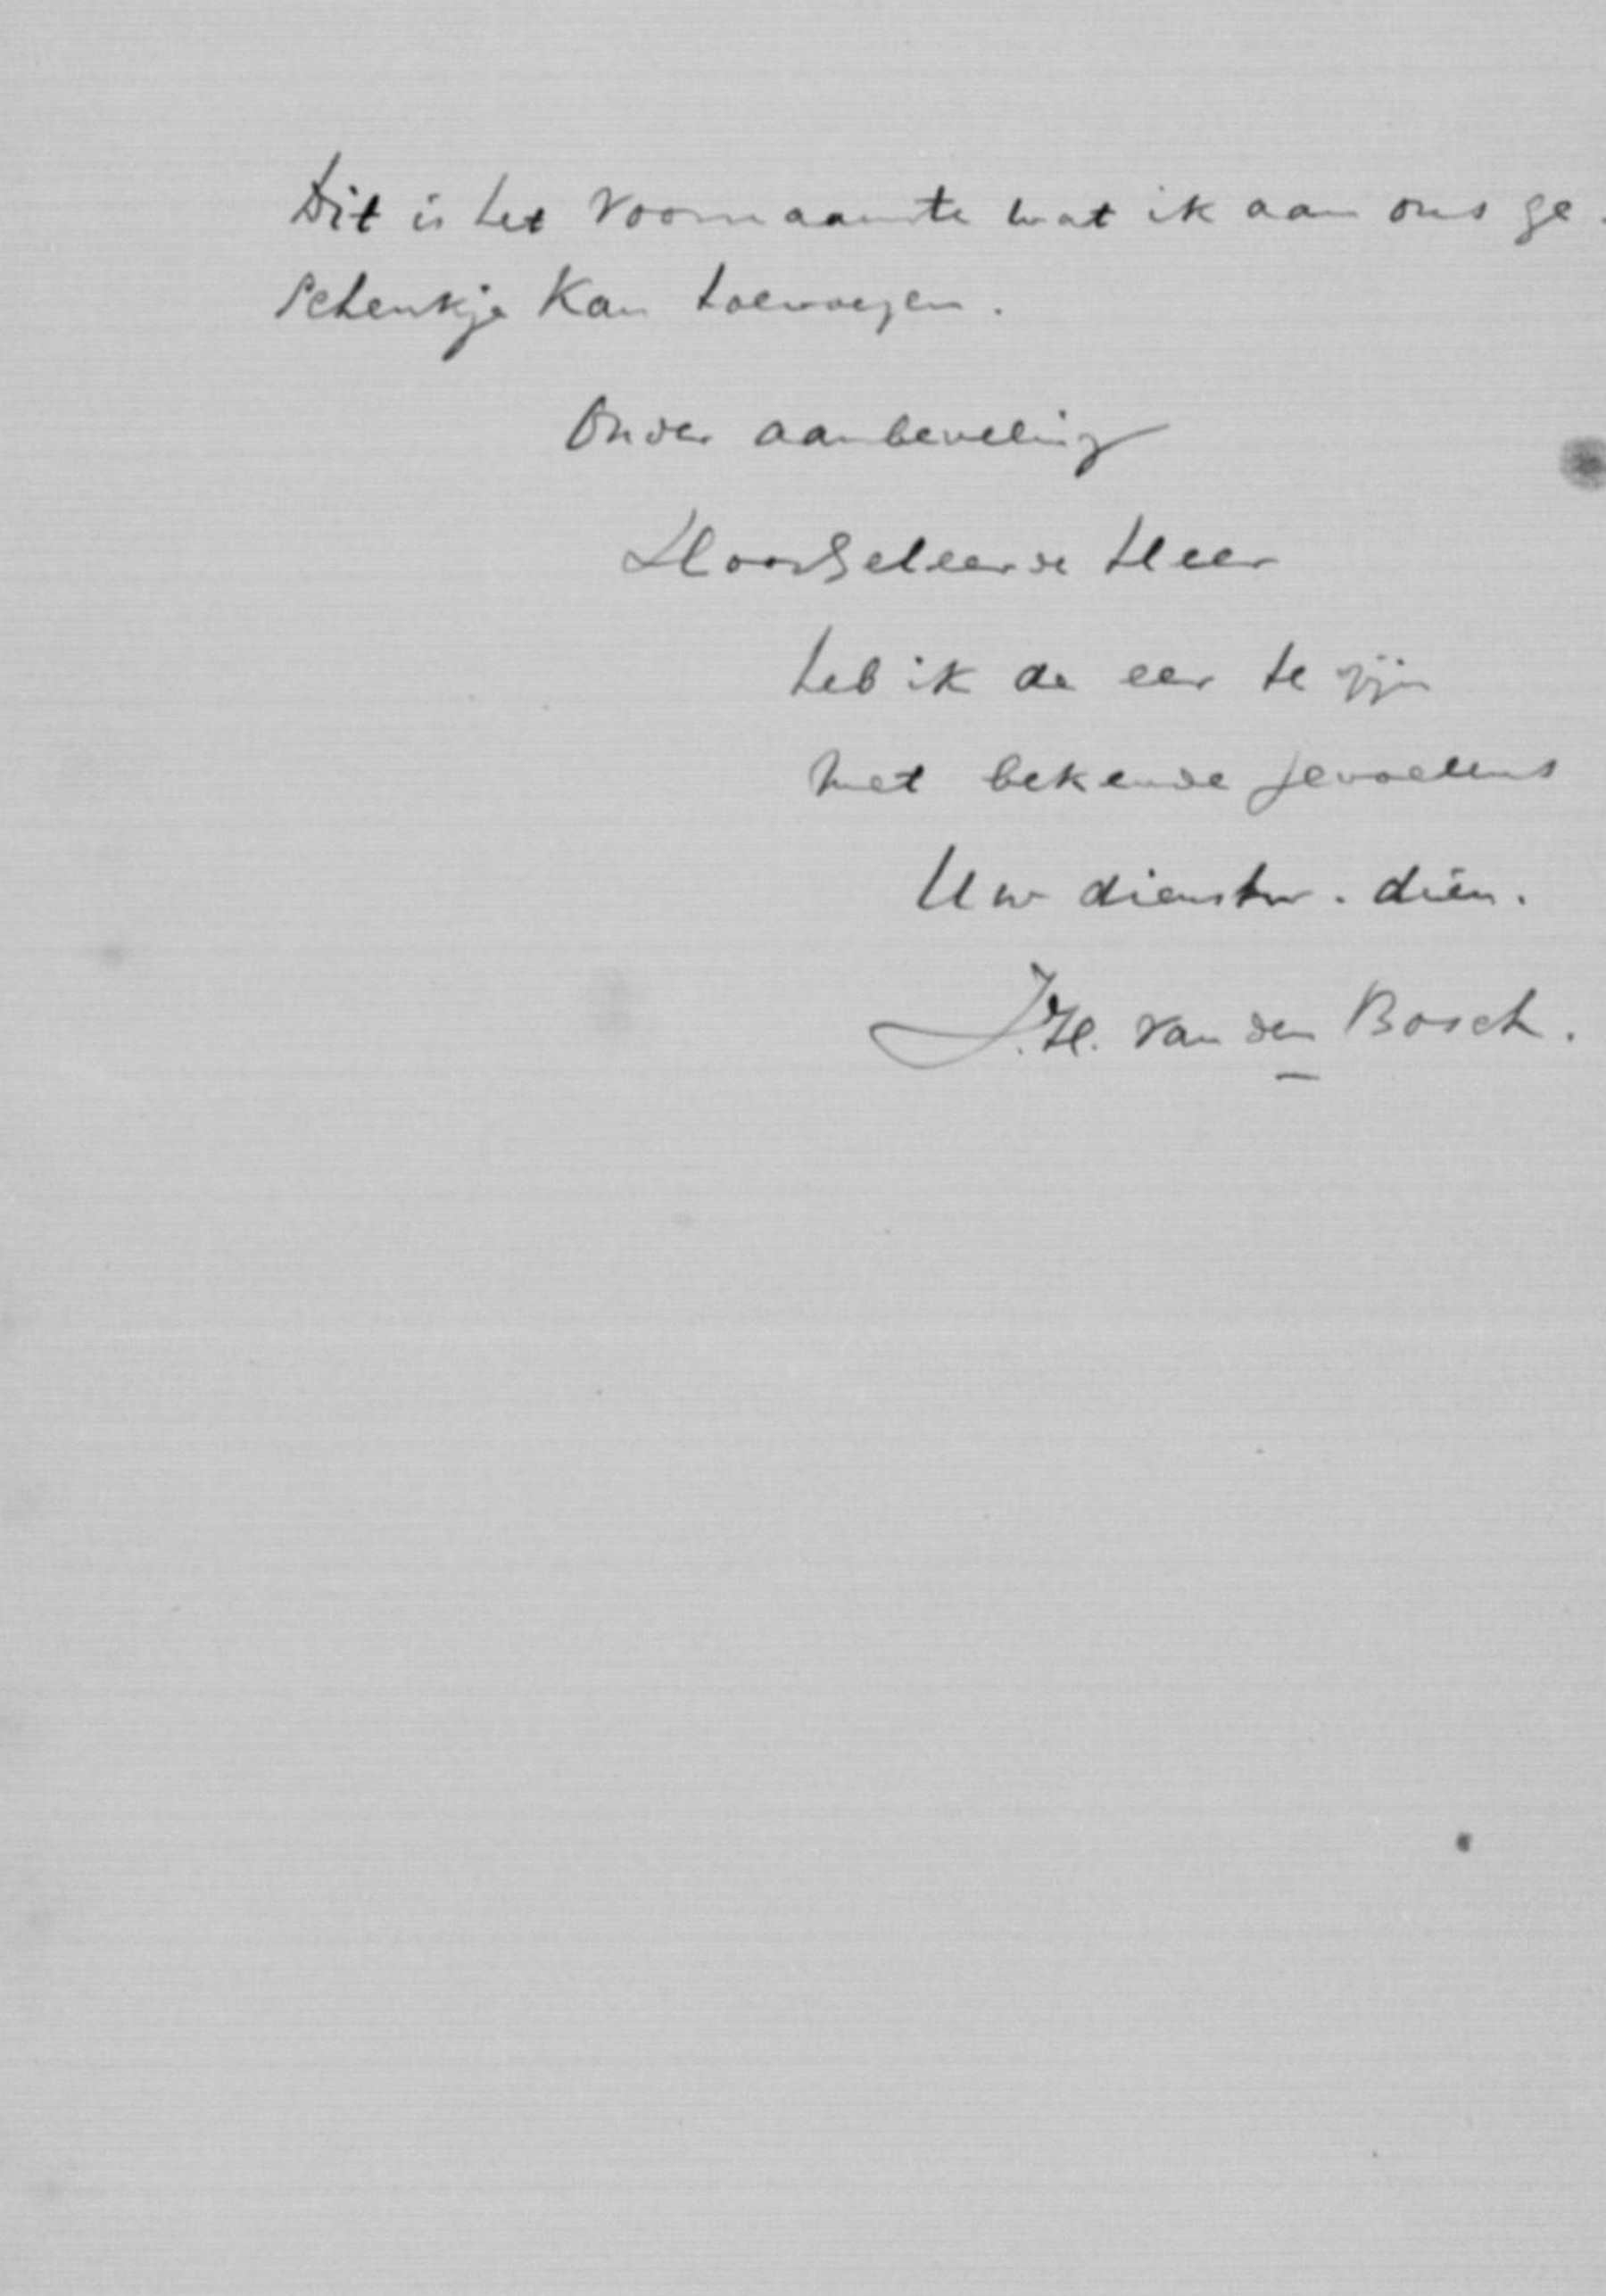 Dit is het voornaamste wat ik aan ons ge-
schenkje kan toevoegen.
Onder aanbeveling
Hooggeleerde Heer
heb ik de eer te zijn
met bekende gevoelens
Uw dienstw. dien.
J.H. van den Bosch.